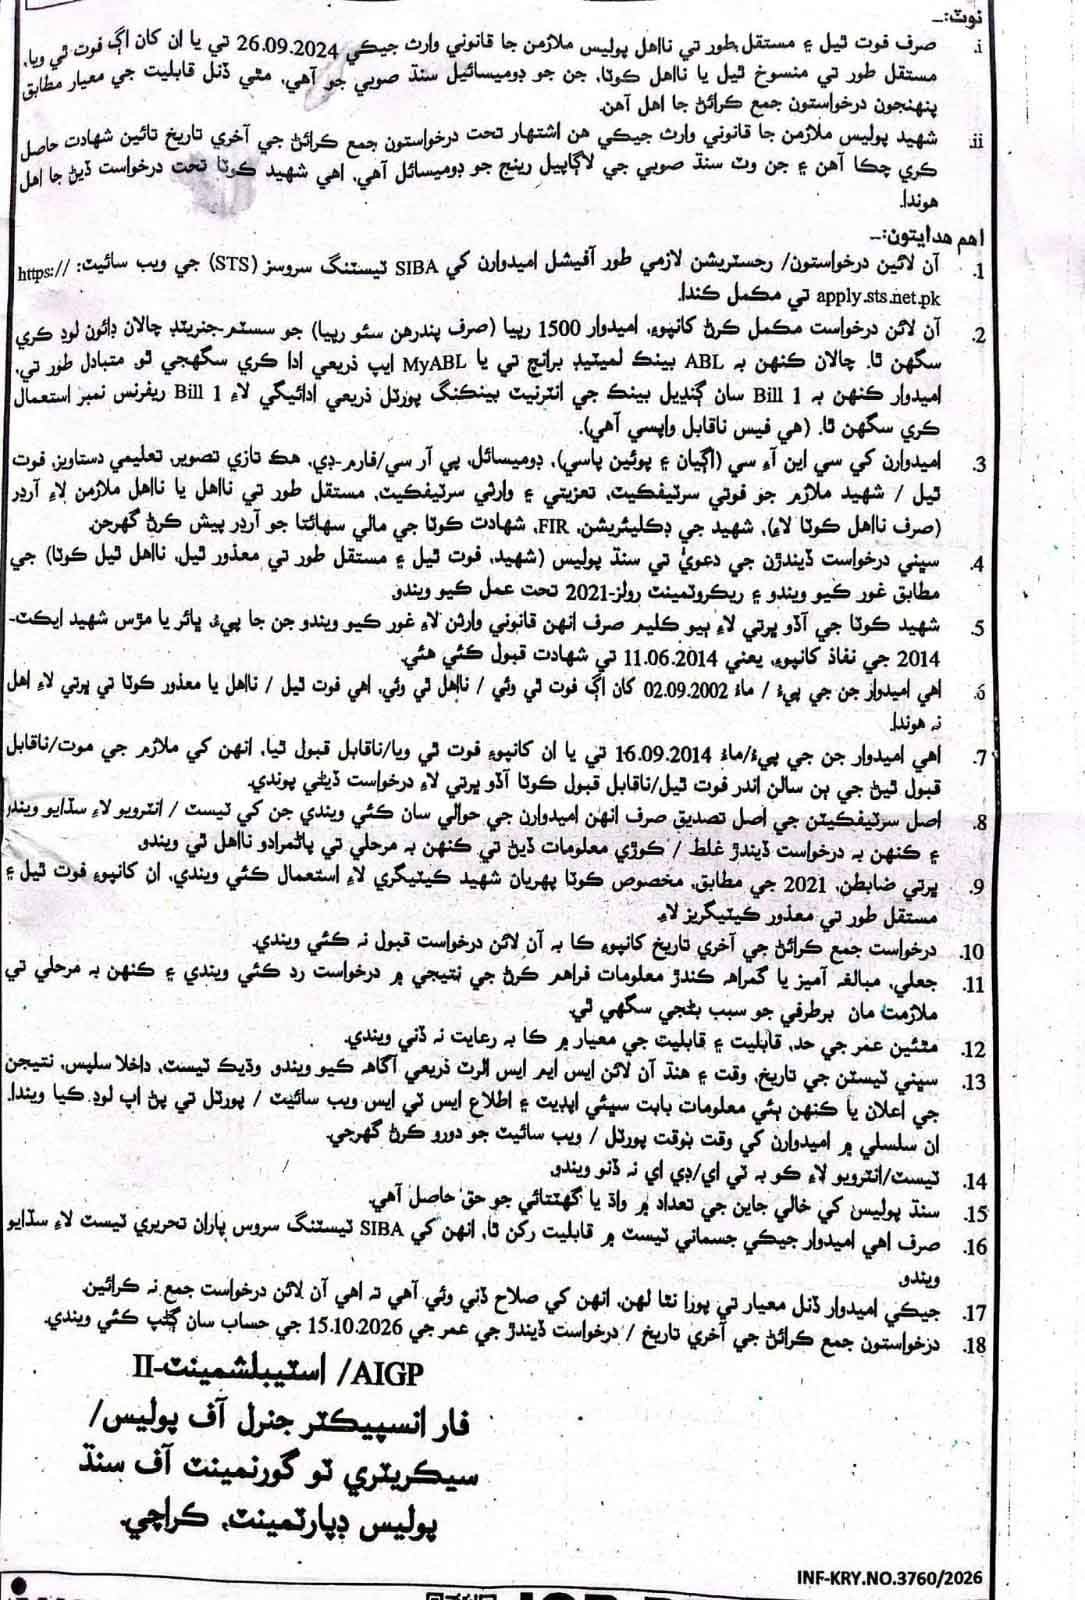 نوٽ:-
i. صرف فوت ٿيل ۽ مستقل طور تي نااهل پوليس ملازمن جا قانوني وارث جيڪي 26.09.2024 تي يا ان کان اڳ فوت ٿي ويا،
مستقل طور تي منسوخ ٿيل يا نااهل ڪوٽا، جن جو ڊوميسائيل سنڌ صوبي جو آهي، مٿي ڏنل قابليت جي معيار مطابق
پنهنجون درخواستون جمع ڪرائڻ جا اهل آهن.
ii. شهيد پوليس ملازمن جا قانوني وارث جيڪي هن اشتهار تحت درخواستون جمع ڪرائڻ جي آخري تاريخ تائين شهادت حاصل
ڪري چڪا آهن ۽ جن وٽ سنڌ صوبي جي لاڳاپيل رينج جو ڊوميسائل آهي، اهي شهيد ڪوٽا تحت درخواست ڏيڻ جا اهل
هوندا.
اهم هدايتون:-
1. آن لائين درخواستون/ رجسٽريشن لازمي طور آفيشل اميدوارن کي SIBA ٽيسٽنگ سروسز (STS) جي ويب سائيٽ: https://
apply.sts.net.pk تي مڪمل ڪندا.
2. آن لائن درخواست مڪمل ڪرڻ کانپوءِ، اميدوار 1500 رپيا (صرف پندرهن سئو رپيا) جو سسٽم-جنريٽڊ چالان ڊائون لوڊ ڪري
سگهن ٿا. چالان ڪنهن به ABL بينڪ لميٽيڊ برانچ تي يا MyABL ايپ ذريعي ادا ڪري سگهجي ٿو. متبادل طور تي،
اميدوار ڪنهن به 1 Bill سان ڳنڍيل بينڪ جي انٽرنيٽ بينڪنگ پورٽل ذريعي ادائيگي لاءِ 1 Bill ريفرنس نمبر استعمال
ڪري سگهن ٿا. (هي فيس ناقابل واپسي آهي).
3. اميدوارن کي سي اين آءِ سي (اڳيان ۽ پوئين پاسي)، ڊوميسائل، پي آر سي/فارم-ڊي، هڪ تازي تصوير، تعليمي دستاويز، فوت
ٿيل / شهيد ملازم جو فوتي سرٽيفڪيٽ، تعزيتي ۽ وارثي سرٽيفڪيٽ، مستقل طور تي نااهل يا نااهل ملازمن لاءِ آرڊر
(صرف نااهل ڪوٽا لاءِ)، شهيد جي ڊڪليئريشن، FIR، شهادت ڪوٽا جي مالي سهائتا جو آرڊر پيش ڪرڻ گهرجن.
4. سڀني درخواست ڏيندڙن جي دعويٰ تي سنڌ پوليس (شهيد، فوت ٿيل ۽ مستقل طور تي معذور ٿيل، نااهل ٿيل ڪوٽا) جي
مطابق غور ڪيو ويندو ۽ ريڪروٽمينٽ رولز-2021 تحت عمل ڪيو ويندو.
5. شهيد ڪوٽا جي آڌو ڀرتي لاءِ ٻيو ڪليم صرف انهن قانوني وارثن لاءِ غور ڪيو ويندو جن جا پيءُ ڀائر يا مڙس شهيد ايڪٽ-
2014 جي نفاذ کانپوءِ، يعني 11.06.2014 تي شهادت قبول ڪئي هئي.
6. اهي اميدوار جن جي پيءُ / ماءُ 02.09.2002 کان اڳ فوت ٿي وئي / نااهل ٿي وئي، اهي فوت ٿيل / نااهل يا معذور ڪوٽا تي ڀرتي لاءِ اهل
نه هوندا.
7. اهي اميدوار جن جي پيءُ/ماءُ 16.09.2014 تي يا ان کانپوءِ فوت ٿي ويا/ناقابل قبول ٿيا، انهن کي ملازم جي موت/ناقابل
قبول ٿيڻ جي ٻن سالن اندر فوت ٿيل/ناقابل قبول ڪوٽا آڌو ڀرتي لاءِ درخواست ڏيڻي پوندي.
8. اصل سرٽيفڪيٽن جي اصل تصديق صرف انهن اميدوارن جي حوالي سان ڪئي ويندي جن کي ٽيسٽ / انٽرويو لاءِ سڏايو ويندو
۽ ڪنهن به درخواست ڏيندڙ غلط / ڪوڙي معلومات ڏيڻ تي ڪنهن به مرحلي تي پاڻمرادو نااهل ٿي ويندو.
9. ڀرتي ضابطن، 2021 جي مطابق، مخصوص ڪوٽا پهريان شهيد ڪيٽيگري لاءِ استعمال ڪئي ويندي، ان کانپوءِ فوت ٿيل ۽
مستقل طور تي معذور ڪيٽيگريز لاءِ.
10. درخواست جمع ڪرائڻ جي آخري تاريخ کانپوءِ ڪا به آن لائن درخواست قبول نه ڪئي ويندي.
11. جعلي، مبالغہ آميز يا گمراهہ ڪندڙ معلومات فراهم ڪرڻ جي نتيجي ۾ درخواست رد ڪئي ويندي ۽ ڪنهن به مرحلي تي
ملازمت مان برطرفي جو سبب بڻجي سگهي ٿي.
12. مٿئين عمر جي حد، قابليت ۽ قابليت جي معيار ۾ ڪا به رعايت نه ڏني ويندي.
13. سڀني ٽيسٽن جي تاريخ، وقت ۽ هنڌ آن لائن ايس ايم ايس الرٽ ذريعي آگاهہ ڪيو ويندو. وڌيڪ ٽيسٽ، داخلا سلپس، نتيجن
جي اعلان يا ڪنهن ٻئي معلومات بابت سڀئي اپڊيٽ ۽ اطلاع ايس ٽي ايس ويب سائيٽ / پورٽل تي پڻ اپ لوڊ ڪيا ويندا.
ان سلسلي ۾ اميدوارن کي وقت بوقت پورٽل / ويب سائيٽ جو دورو ڪرڻ گهرجي.
14. ٽيسٽ/انٽرويو لاءِ ڪو به ٽي اي/ڊي اي نه ڏنو ويندو.
15. سنڌ پوليس کي خالي جاين جي تعداد ۾ واڌ يا گهٽتائي جو حق حاصل آهي.
16. صرف اهي اميدوار جيڪي جسماني ٽيسٽ ۾ قابليت رکن ٿا، انهن کي SIBA ٽيسٽنگ سروس پاران تحريري ٽيسٽ لاءِ سڏايو
ويندو.
17. جيڪي اميدوار ڏنل معيار تي پورا نٿا لهن، انهن کي صلاح ڏني وئي آهي ته اهي آن لائن درخواست جمع نه ڪرائين.
18. درخواستون جمع ڪرائڻ جي آخري تاريخ / درخواست ڏيندڙ جي عمر جي 15.10.2026 جي حساب سان ڳڻپ ڪئي ويندي.
AIGP/ اسٽيبلشمينٽ-II
فار انسپيڪٽر جنرل آف پوليس/
سيڪريٽري ٽو گورنمينٽ آف سنڌ
پوليس ڊپارٽمينٽ، ڪراچي.
INF-KRY.NO.3760/2026